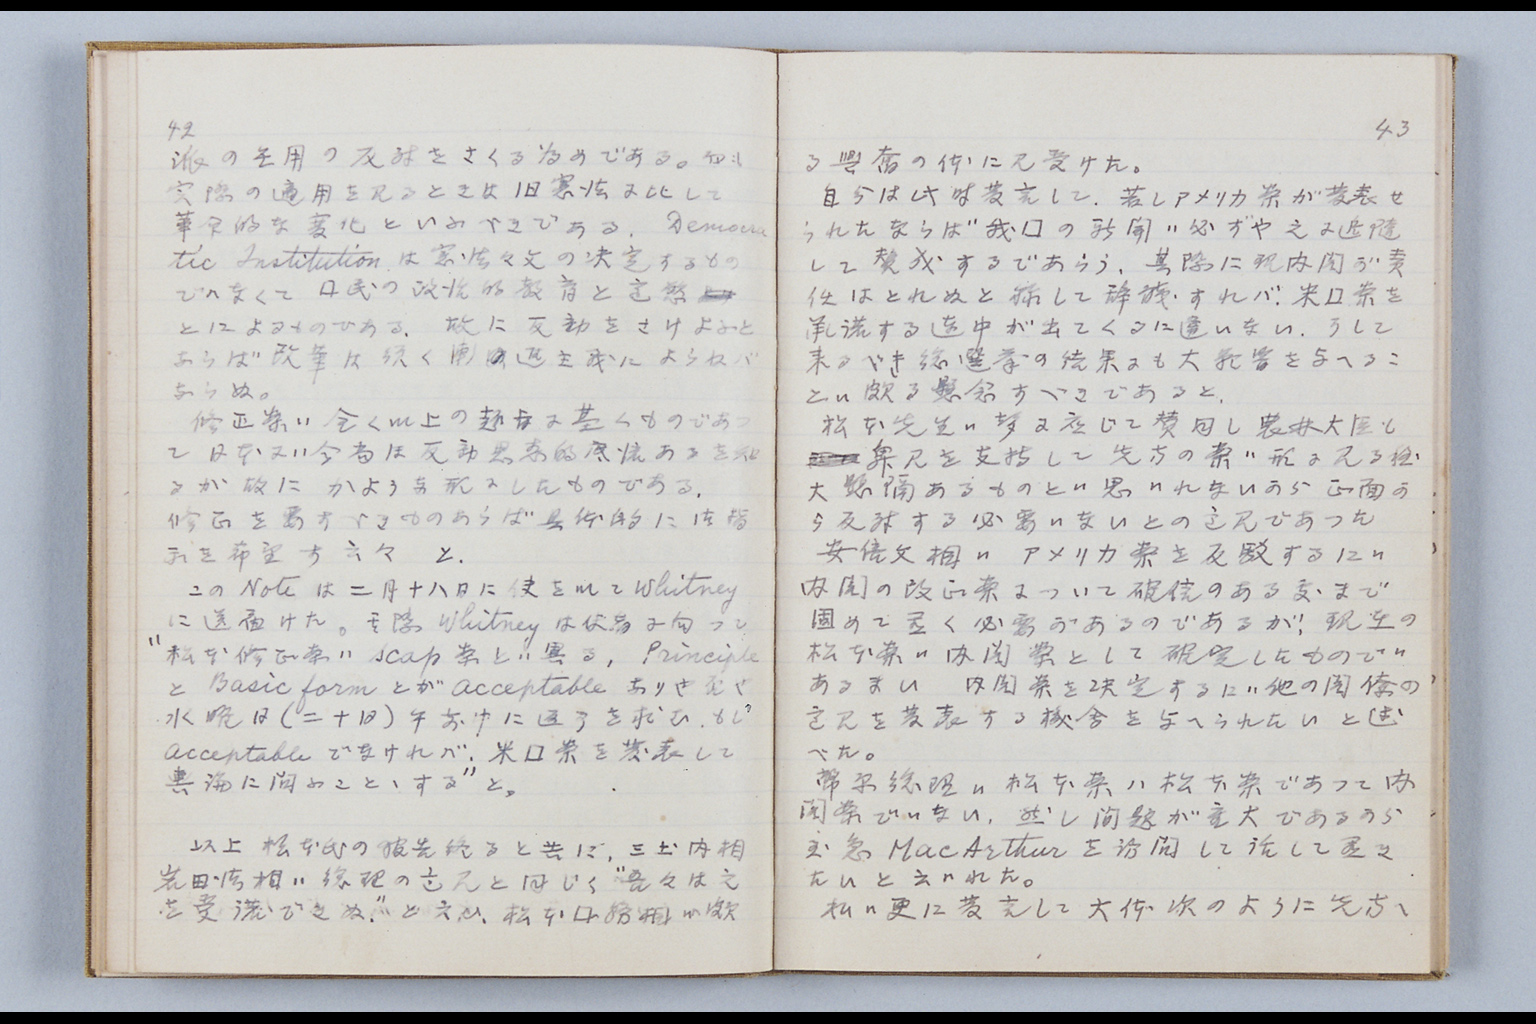 42
派の至用の反対をさくる為めである。却つ
実際の適用を見るときは旧憲法に比して
革命的な変化といふべきである. Democra
tic Institution は憲法々文の決定するもの
でハなくて 口民の政治的教育と意慾
とによるものである. 故に反動をさけよふと
あらば改革は須く漸進主義によらねバ
ならぬ。
修正案ハ全く以上の趣旨に基くものであつ
て 日本ニハ今尚ほ反動思想的底流あるを知
るが故に かような形ニしたものである.
修正を要すべきものあらば具体的に御指
示を希望す云々 と.
このNoteは二月十八日に使を以てWhitney
に送届けた。其際Whitneyは使者に向つて
"松本修正案ハ scap案とハ異る, Principle
と Basic form とが acceptable なりや否や
水曜日(二十日)午前中に返事を求む. もし
acceptableでなければバ, 米口案を発表して
輿論に問ふことゝする"と。
以上 松本氏の報告終ると共に, 三土内相
岩田法相ハ総理の意見と同じく"吾々は之
を受諾できぬ"と云ひ, 松本口務相ハ頗
43
る興奮の体に見受けた。
自分は此時発言して. 若しアメリカ案が発表せ
られたならば我口の新聞ハ必ずや之に追随
して賛成するであらう, 其際に現内閣が責
任はとれぬと称して辞職すれバ, 米口案を
承諾する連中が出てくるに違いない. そして
来るべき総選挙の結果にも大影響を与へるこ
とハ頗る懸念すべきであると.
松本先生ハ声に応じて賛同し農林大臣も
臭見を支持して 先方の案ハ形に見る程
大懸隔あるものとハ思ハれないから正面か
ら反対する必要ハないとの意見であつた
安倍文相ハ アメリカ案を反駁するにハ
内閣の改正案について確信のある処まで
固めて置く必要があるのであるが, 現在の
松本案ハ内閣案として確定したものでハ
あるまい 内閣案を決定するにハ他の閣僚の
意見を発表する機会を与へられたいと述
べた。
幣原総理ハ松本案ハ松本案であつて内
閣案でハない, 然し問題が重大であるから
至急MacArthurを訪問して話して置き
たいと云ハれた。
私ハ更に発言して大体次のように先方へ